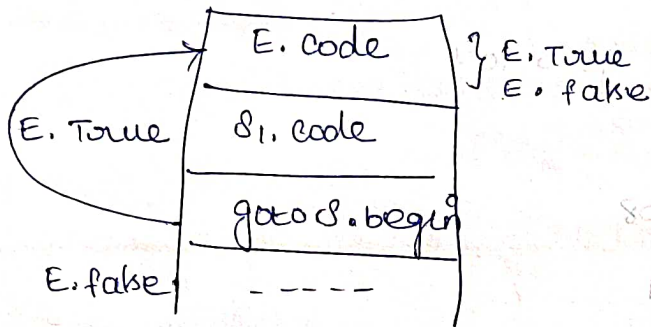 E. code
} E. True
E. false
E. True
S1. code
goto S.begin
E. false
- - - - -